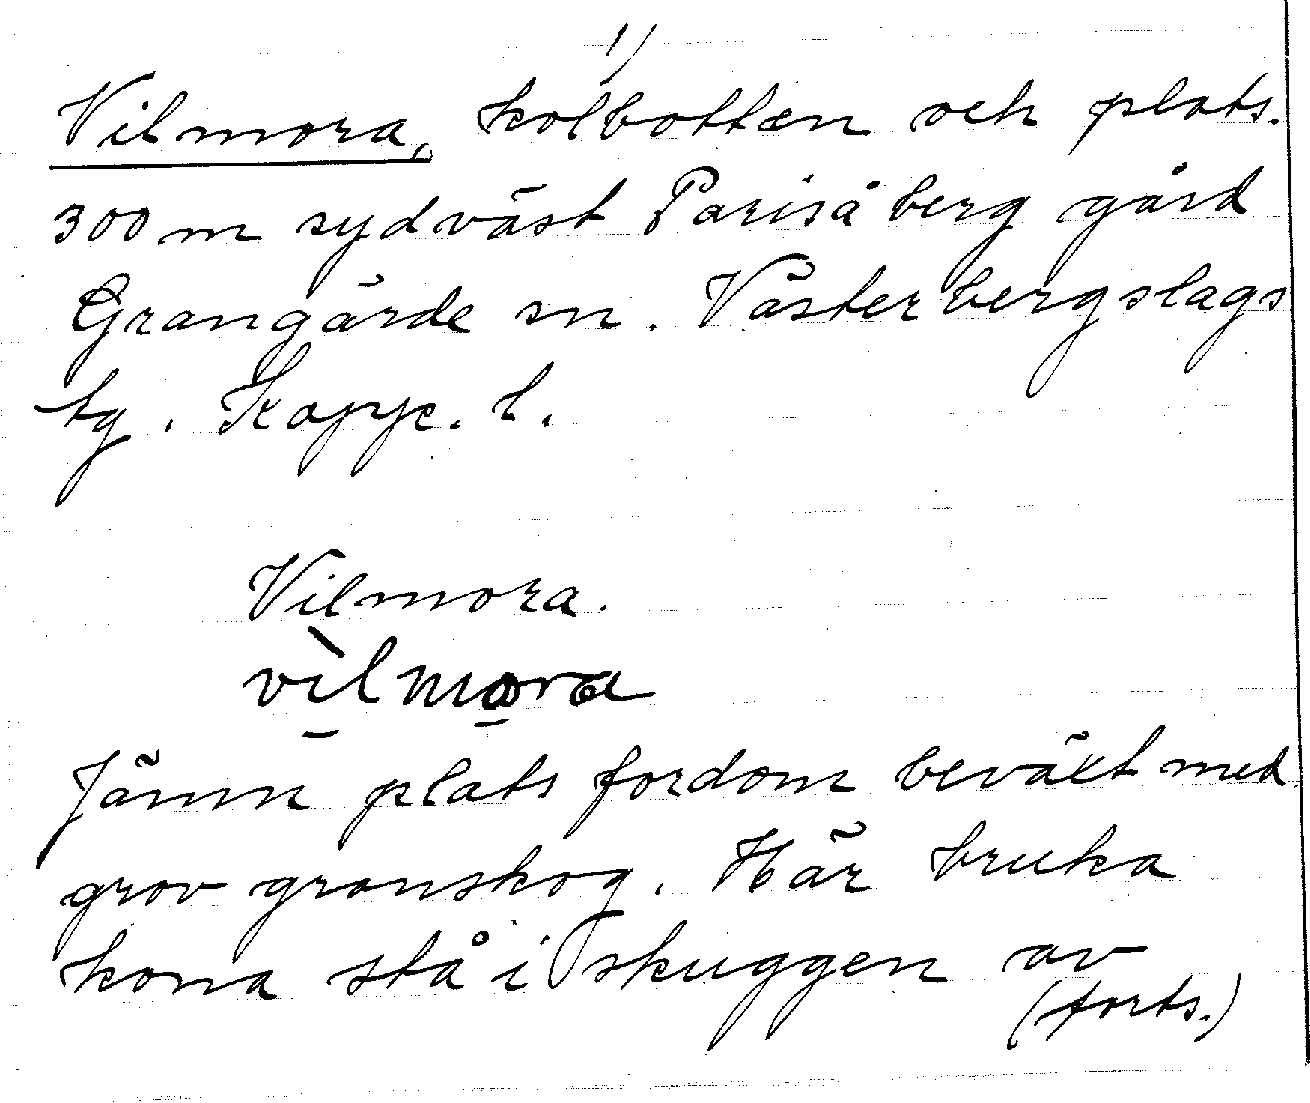 1)
Vilmora, kolbotten och plats.
300 m sydväst Parisåberg gård
Grangärde sn. Västerbergslags
tg. Kopp. l.
Vilmora.
vìlmora
Jämn plats fordom beväxt med
grov granskog. Här bruka
korna stå i skuggen av
(forts.)